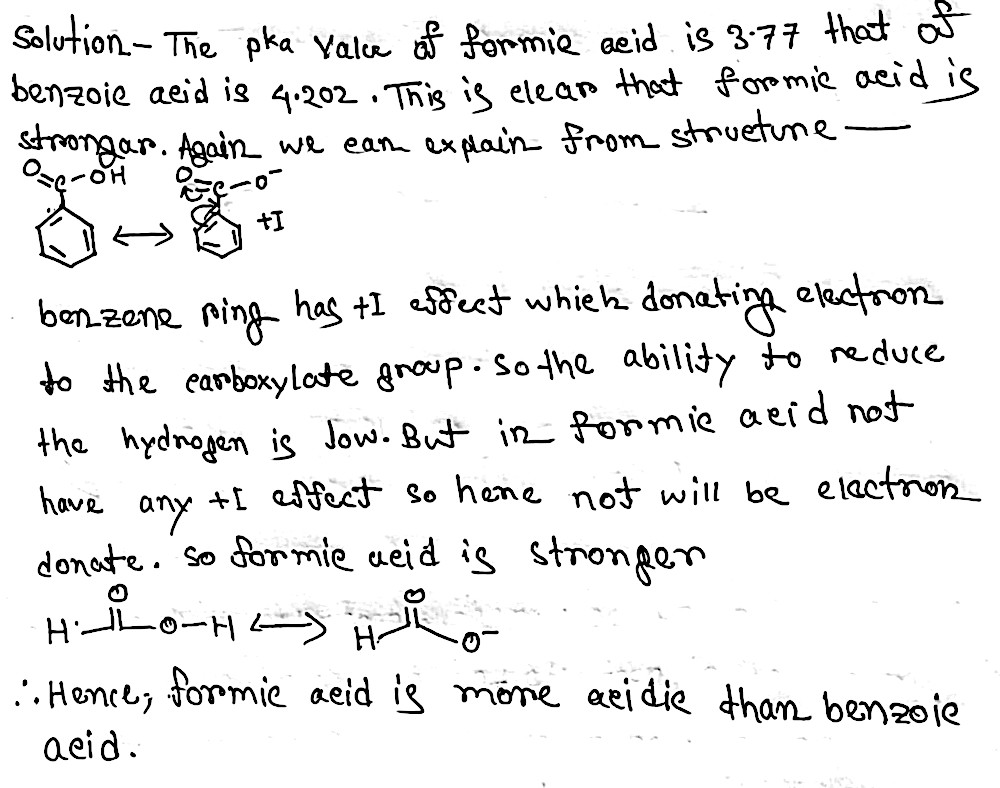 Solution - The pka value of formic acid is 3.77 that of
benzoic acid is 4.202. This is clear that formic acid is
stronger. Again we can explain from structure —
O=C-OH O=C-O⁻
+I
benzene ring has +I effect which donating electron
to the carboxylate group. So the ability to reduce
the hydrogen is low. But in formic acid not
have any +I effect so here not will be electron
donate. So formic acid is stronger
O O
H O-H ⟷ H O⁻
∴ Hence, formic acid is more acidic than benzoic
acid.